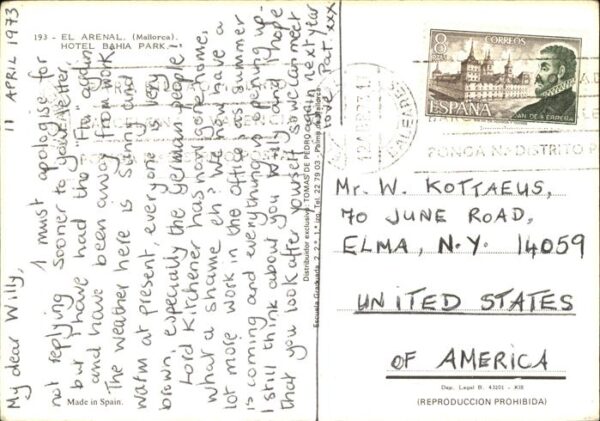 193 - EL ARENAL. (Mallorca).
HOTEL BAHIA PARK.
11 APRIL 1973
My dear Willy,
I must apologise for
not replying sooner to your letter,
but I have had the "Flu" again
and have been away from work
The weather here is Sunny and
warm at present, everyone is very
brown, especially the german people!
Lord Kirchener has now gone home,
what a shame eh? We now have a
lot more work in the office as summer
is coming and everything is opening up.
I still think about you Willy and I hope
that you look after yourself so we can meet
again next year
love, Pat. xxx
Distribuidor exclusivo: TOMAS DE PEDRO
Escuela Graduada, 2, 2.° 1.ª izq. Tel. 22 79 03 - Palma de Mallorca
Made in Spain.
8
PTAS
CORREOS
ESPAÑA
JUAN DE HERRERA
BALEARES
PONGA Nº DISTRITO P
Mr. W. KOTTAEUS,
70 JUNE ROAD,
ELMA, N.Y. 14059
UNITED STATES
OF AMERICA
Dep. Legal B. 43201 - XIII
(REPRODUCCION PROHIBIDA)